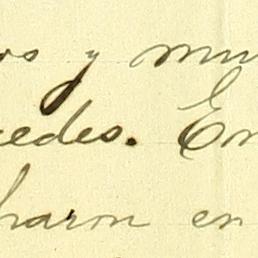 os y mu
edes. En
haron en